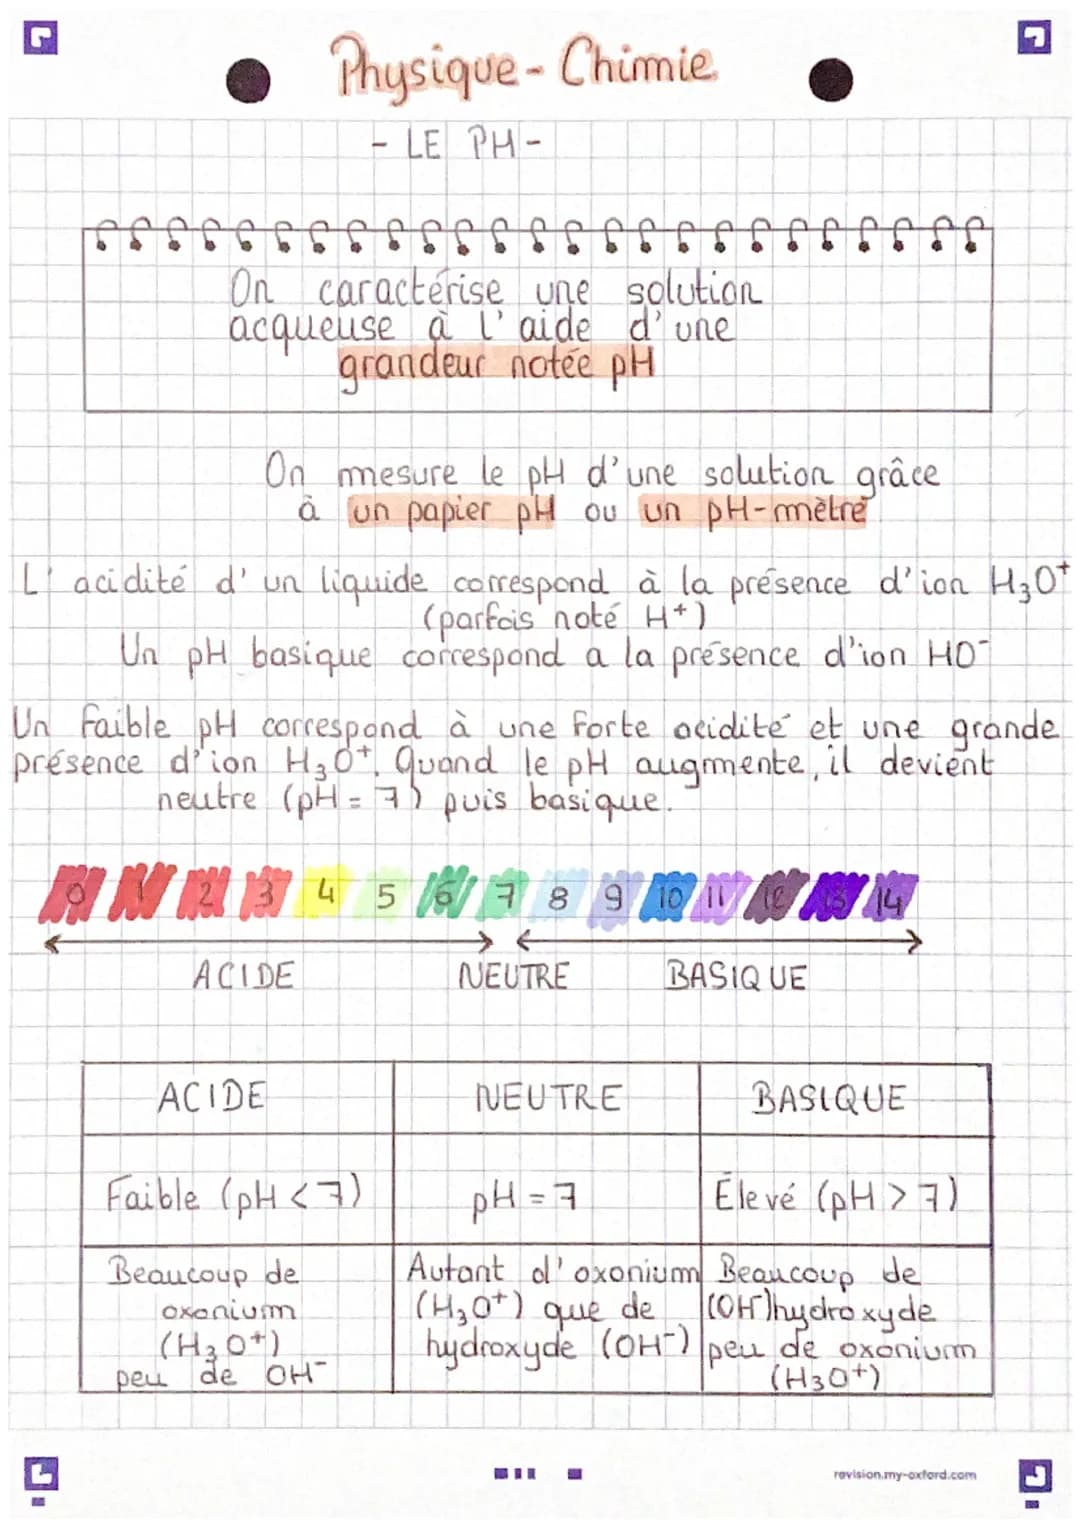 Physique - Chimie
- LE PH -
On caractérise une solution
acqueuse à l'aide d'une
grandeur notée pH
On mesure le pH d'une solution grâce
à un papier pH ou un pH-mètre
L'acidité d'un liquide correspond à la présence d'ion H₃O⁺
(parfois noté H⁺)
Un pH basique correspond a la présence d'ion HO⁻
Un faible pH correspond à une forte acidité et une grande
présence d'ion H₃O⁺. Quand le pH augmente, il devient
neutre (pH = 7) puis basique.
0 1 2 3 4 5 6 7 8 9 10 11 12 13 14
ACIDE NEUTRE BASIQUE
ACIDE NEUTRE BASIQUE
Faible (pH < 7) pH = 7 Élevé (pH > 7)
Beaucoup de Autant d'oxonium Beaucoup de
oxonium (H₃O⁺) que de (OH⁻) hydroxyde
(H₃O⁺) hydroxyde (OH⁻) peu de oxonium
peu de OH⁻ (H₃O⁺)
revision.my-oxford.com